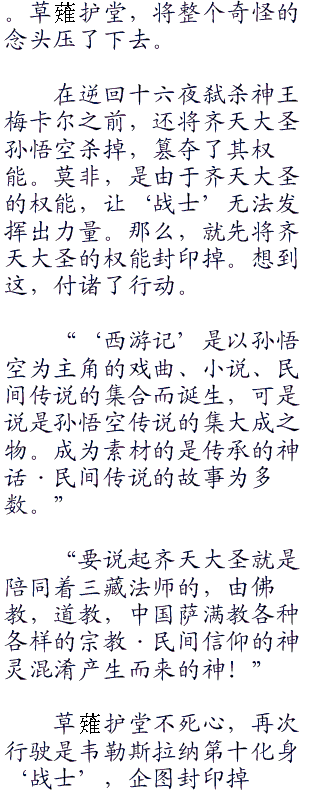 。草薙护堂，将整个奇怪的
念头压了下去。
在逆回十六夜弑杀神王
梅卡尔之前，还将齐天大圣
孙悟空杀掉，篡夺了其权
能。莫非，是由于齐天大圣
的权能，让‘战士’无法发
挥出力量。那么，就先将齐
天大圣的权能封印掉。想到
这，付诸了行动。
“‘西游记’是以孙悟
空为主角的戏曲、小说、民
间传说的集合而诞生，可是
说是孙悟空传说的集大成之
物。成为素材的是传承的神
话·民间传说的故事为多
数。”
“要说起齐天大圣就是
陪同着三藏法师的，由佛
教，道教，中国萨满教各种
各样的宗教·民间信仰的神
灵混淆产生而来的神！”
草薙护堂不死心，再次
行驶是韦勒斯拉纳第十化身
‘战士’，企图封印掉